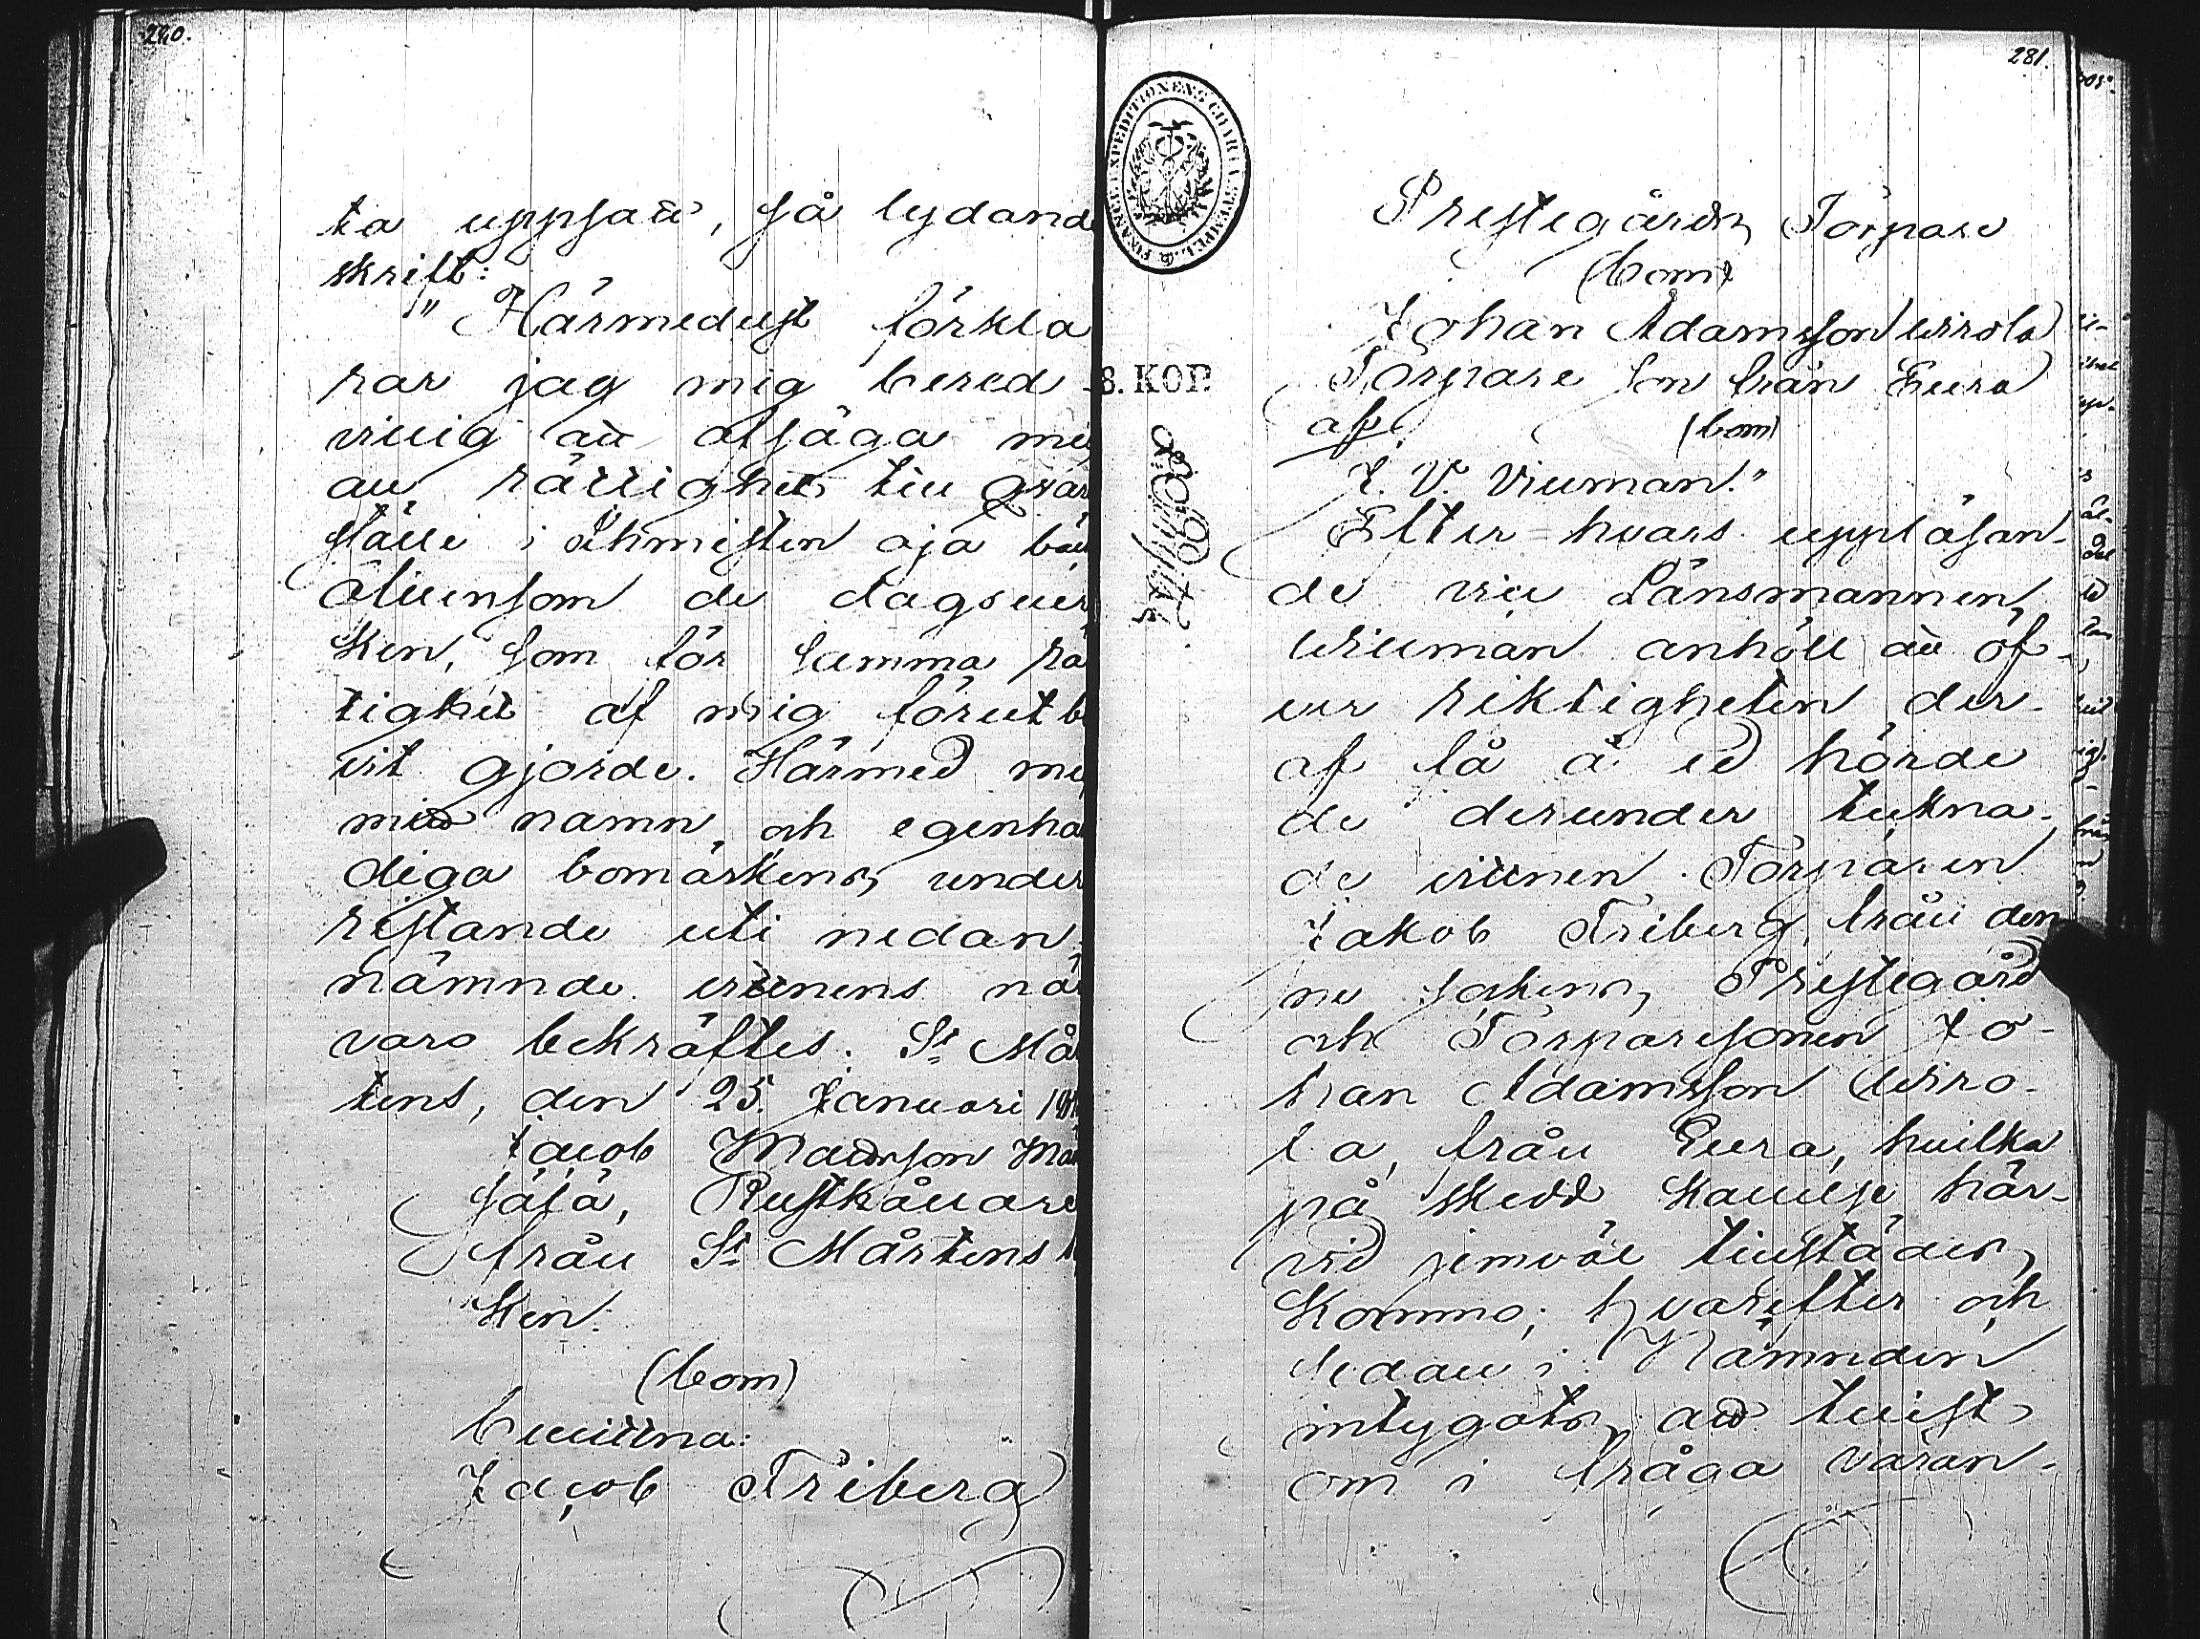 280.
ta uppsatt, så lydand
skrift:
"Härmedelst förkla
rar jag mig bered-
villig att afsäga mig
all rättighet till qvar
ställe i Ahmisten oja bäck
äfvensom de dagsver
ken, som för samma rä
tighet af mig förutbe
vit gjorde. Härmed me
mitt namn och egenhä
diga bomärkens under
ristande uti nedan-
nämnde vittnens när
varo bekräftes. St Mår
tens, den 25. Januari 18
Jacob Mattsson
Säjä, Rusthållare
från St Mårtens
ken.
(bom)
Bevittna:
Jacob Friberg
281.
FINANCE EXPEDITIONENS CHARTA STEMPEL
8. KOP.
Prestegårds Torpare
(bom)
Johan Adamsson Wirola
Torpare Son från Eura
af (bom)
J. V. Villman."
Efter hvars uppläsan-
de vice Länsmannen
Willman anhöll att öf-
ver riktigheten der-
af få å ed hörde
de derunder tekna-
de vittnen Torparen
Jakob Friberg från den
ne sockens Prestegård
och Torparesonen Jo-
han Adamsson Wiro-
la från Eura, hvilka
på skedd kallelse här-
vid jemväl tillstädes
kommo; hvarefter och
sedan i Nämnden
intygats att tvist
om i fråga varan-